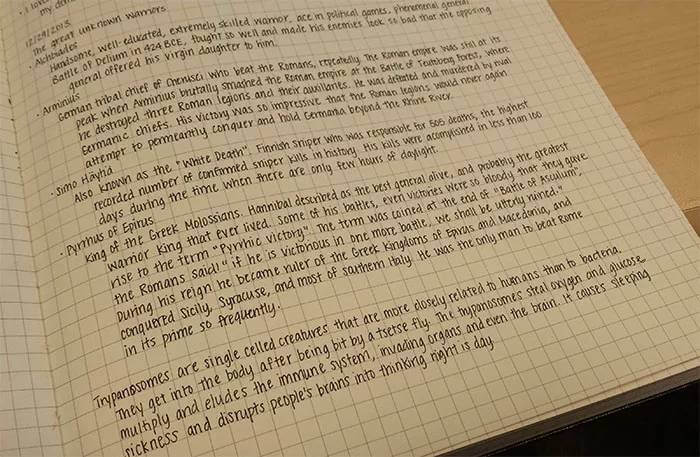 · I love
my dem
12/24/2013.
The great unknown warriors.
· Alchbiades
Handsome, well-educated, extremely skilled warrior, ace in political games, phenomenal general
Battle of Delium in 424 BCE, fought so well and made his enemies look so bad that the opposing
general offered his virgin daughter to him.
· Arminius
German tribal chief of Cherusci who beat the Romans, repeatedly. The Roman empire was still at its
peak when Arminius brutally smashed the Roman empire at the Battle of Teutoberg Forest, where
he destroyed three Roman legions and their auxiliaries. He was defeated and murdered by rival
Germanic chiefs. His victory was so impressive that the Roman legions would never again
attempt to permeantly conquer and hold Germania beyond the Rhine River.
· Simo Häyhä
Also known as the "White Death". Finnish sniper who was responsible for 505 deaths, the highest
recorded number of confirmed sniper kills in history. His kills were acomplished in less than 100
days during the time when there are only few hours of daylight.
· Pyrrhus of Epirus
King of the Greek Molossians. Hannibal described as the best general alive, and probably the greatest
warrior King that ever lived. Some of his battles, even victories were so bloody that they gave
rise to the term "Pyrrhic victory". The term was coined at the end of "Battle of Asculum",
the Romans said: "if he is victorious in one more battle, we shall be utterly ruined."
During his reign he became ruler of the Greek Kingdoms of Epirus and Macedonia, and
conquered Sicily, Syracuse, and most of southern Italy. He was the only man to beat Rome
in its prime so frequently.
Trypanosomes are single celled creatures that are more closely related to humans than to bacteria.
They get into the body after being bit by a tsetse fly. The trypanosomes steal oxygen and glucose
multiply and eludes the immune system, invading organs and even the brain. It causes sleeping
sickness and disrupts people's brains into thinking night is day.